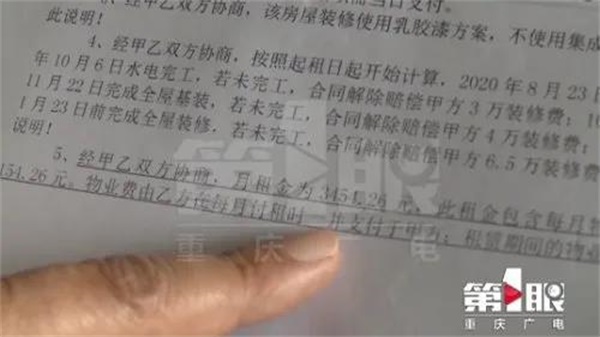 当日支付。
经甲乙双方协商，该房屋装修使用乳胶漆方案，不使用集成
此说明！
4、经甲乙双方协商，按照起租日起开始计算，2020年8月23日
年10月6日水电完工，若未完工，合同解除赔偿甲方3万装修费；
11月22日完成全屋基装，若未完工，合同解除赔偿甲方4万装修费；
1月23日前完成全屋装修，若未完工，合同解除赔偿甲方6.5万装修费
说明！
5、经甲乙双方协商，月租金为3451.26元，此租金包含每月物
154.26元。物业费由乙方在每月付租时一并支付于甲方；租赁期间的物业
第1眼
重庆广电
第1眼
重庆广电